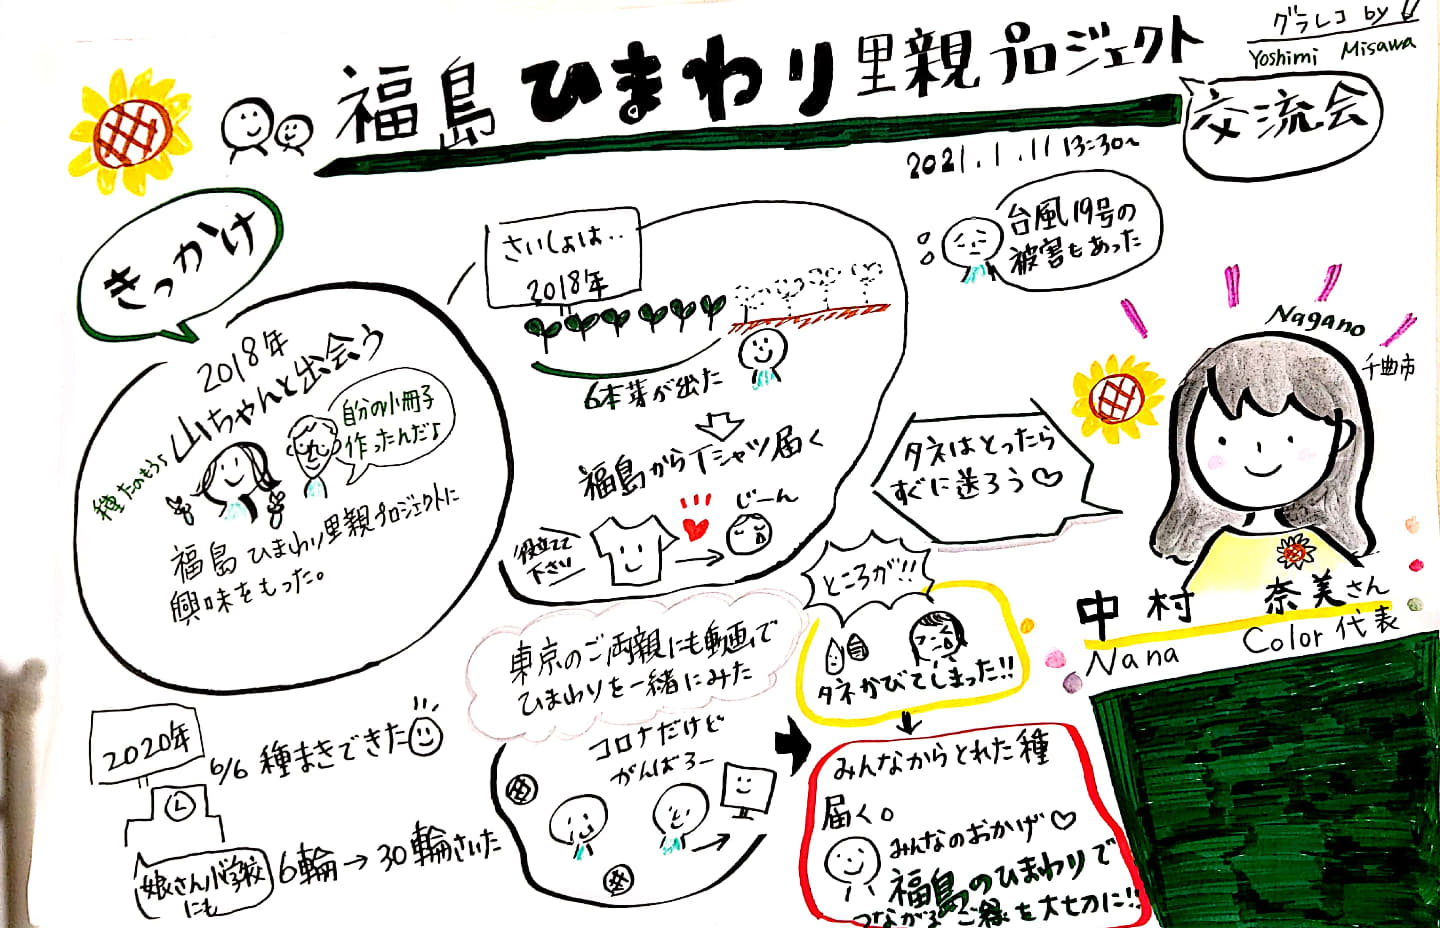 福島ひまわり里親プロジェクト
交流会
グラレコ by
Yoshimi Misawa
2021.1.11 13:30〜
きっかけ
2018年
山ちゃんと出会う
種たのもうよ
自分の小冊子
作ったんだよ
福島ひまわり里親プロジェクトに
興味をもった。
さいしょは..
2018年
6本芽が出た
福島からTシャツ届く
役立てて
下さい
じーん
台風19号の
被害もあった
Nagano
千曲市
タネはとったら
すぐに送ろう♡
中村 奈美さん
Nana Color代表
2020年
6/6 種まきできた
娘さん小学校
にも
6輪→30輪さいた
東京のご両親にも動画で
ひまわりを一緒にみた
コロナだけど
がんばろー
ところが!!
タネかびてしまった!!
みんなからとれた種
届く。
みんなのおかげ♡
福島のひまわりで
つながるご縁を大切に!!